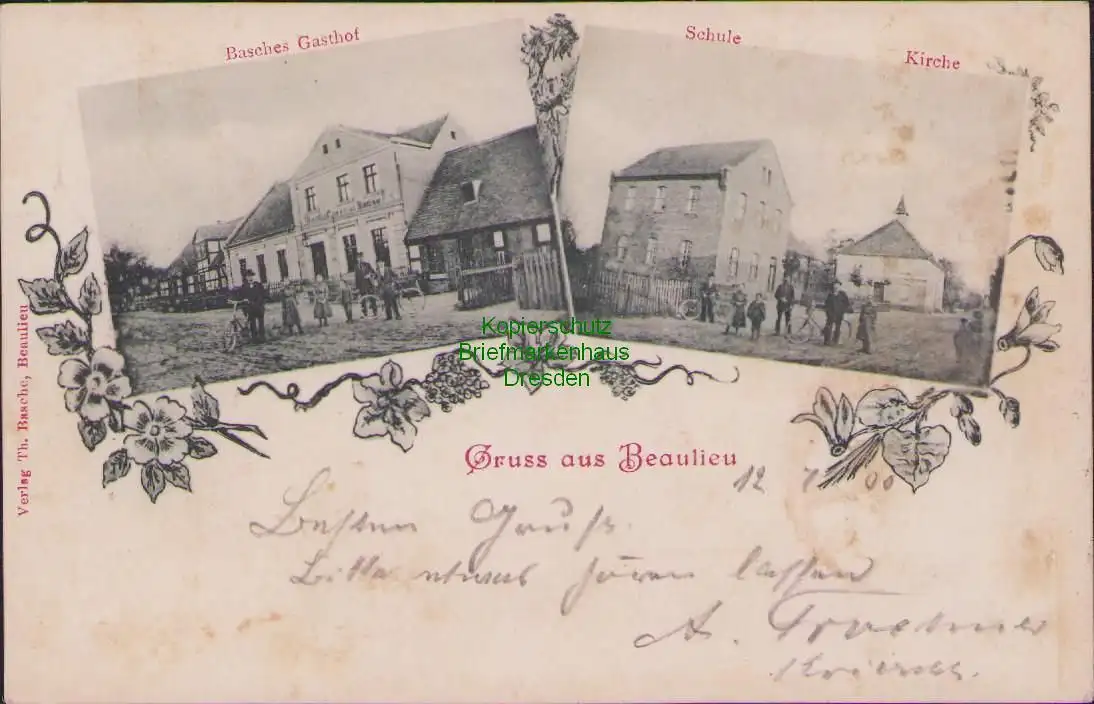 Basches Gasthof
Schule
Kirche
Verlag Th. Basche, Beaulieu
Kopierschutz
Briefmarkenhaus
Dresden
Gruss aus Beaulieu
12 7 00
Besten Gruß.
Bitte etwas hören lassen
A.